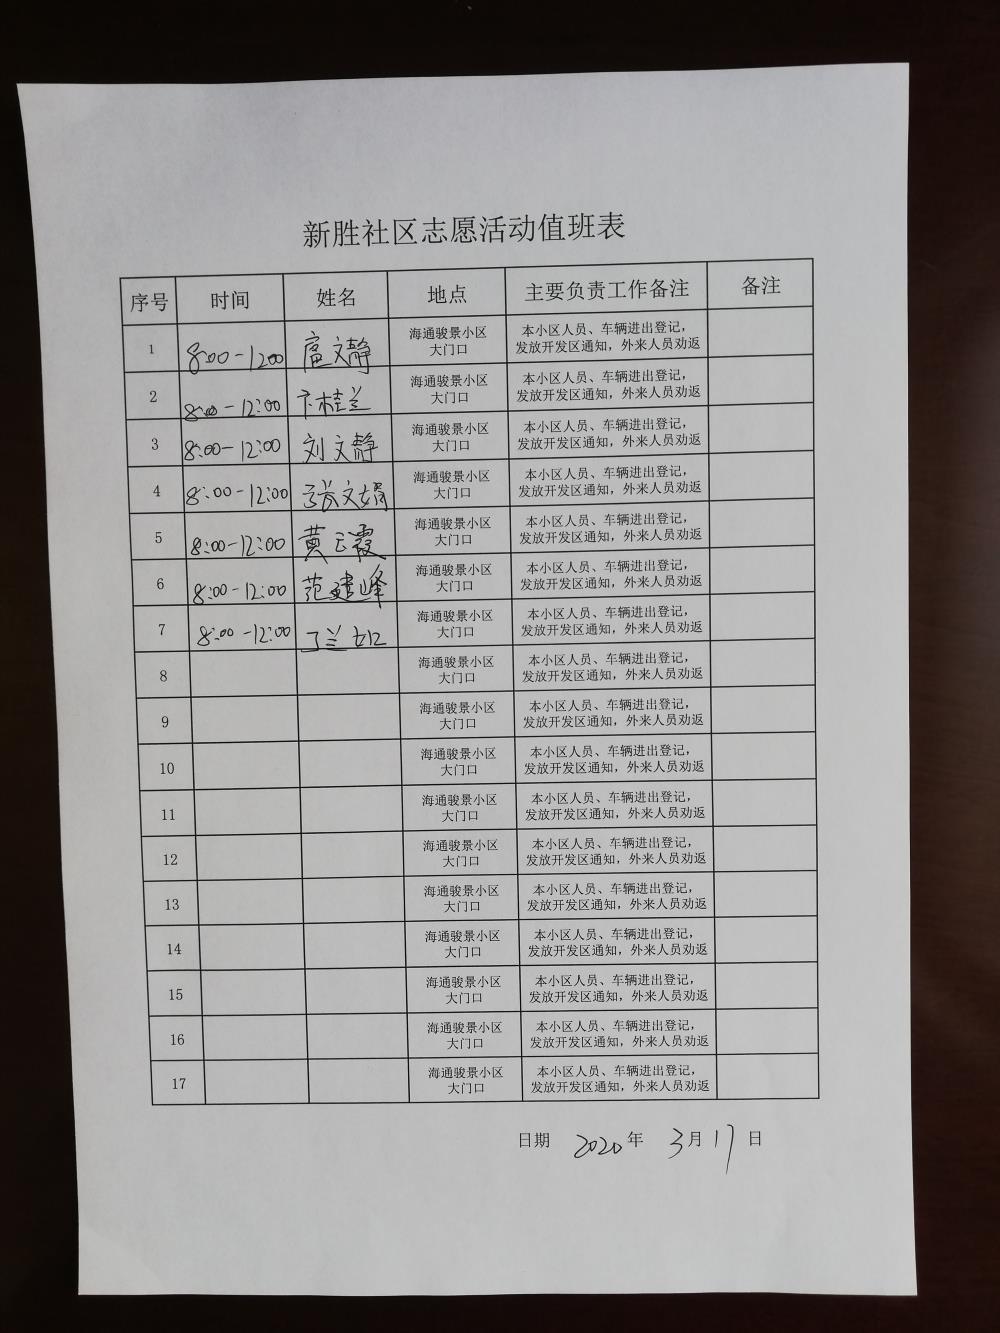 新胜社区志愿活动值班表
序号 时间 姓名 地点 主要负责工作备注 备注
1 8:00-12:00 扈文静 海通骏景小区 本小区人员、车辆进出登记，
大门口 发放开发区通知，外来人员劝返
2 8:00-12:00 卞桂兰 海通骏景小区 本小区人员、车辆进出登记，
大门口 发放开发区通知，外来人员劝返
3 8:00-12:00 刘文静 海通骏景小区 本小区人员、车辆进出登记，
大门口 发放开发区通知，外来人员劝返
4 8:00-12:00 张文娟 海通骏景小区 本小区人员、车辆进出登记，
大门口 发放开发区通知，外来人员劝返
5 8:00-12:00 黄云霞 海通骏景小区 本小区人员、车辆进出登记，
大门口 发放开发区通知，外来人员劝返
6 8:00-12:00 范建峰 海通骏景小区 本小区人员、车辆进出登记，
大门口 发放开发区通知，外来人员劝返
7 8:00-12:00 丁兰 海通骏景小区 本小区人员、车辆进出登记，
大门口 发放开发区通知，外来人员劝返
8 海通骏景小区 本小区人员、车辆进出登记，
大门口 发放开发区通知，外来人员劝返
9 海通骏景小区 本小区人员、车辆进出登记，
大门口 发放开发区通知，外来人员劝返
10 海通骏景小区 本小区人员、车辆进出登记，
大门口 发放开发区通知，外来人员劝返
11 海通骏景小区 本小区人员、车辆进出登记，
大门口 发放开发区通知，外来人员劝返
12 海通骏景小区 本小区人员、车辆进出登记，
大门口 发放开发区通知，外来人员劝返
13 海通骏景小区 本小区人员、车辆进出登记，
大门口 发放开发区通知，外来人员劝返
14 海通骏景小区 本小区人员、车辆进出登记，
大门口 发放开发区通知，外来人员劝返
15 海通骏景小区 本小区人员、车辆进出登记，
大门口 发放开发区通知，外来人员劝返
16 海通骏景小区 本小区人员、车辆进出登记，
大门口 发放开发区通知，外来人员劝返
17 海通骏景小区 本小区人员、车辆进出登记，
大门口 发放开发区通知，外来人员劝返
日期 2020年 3月17日